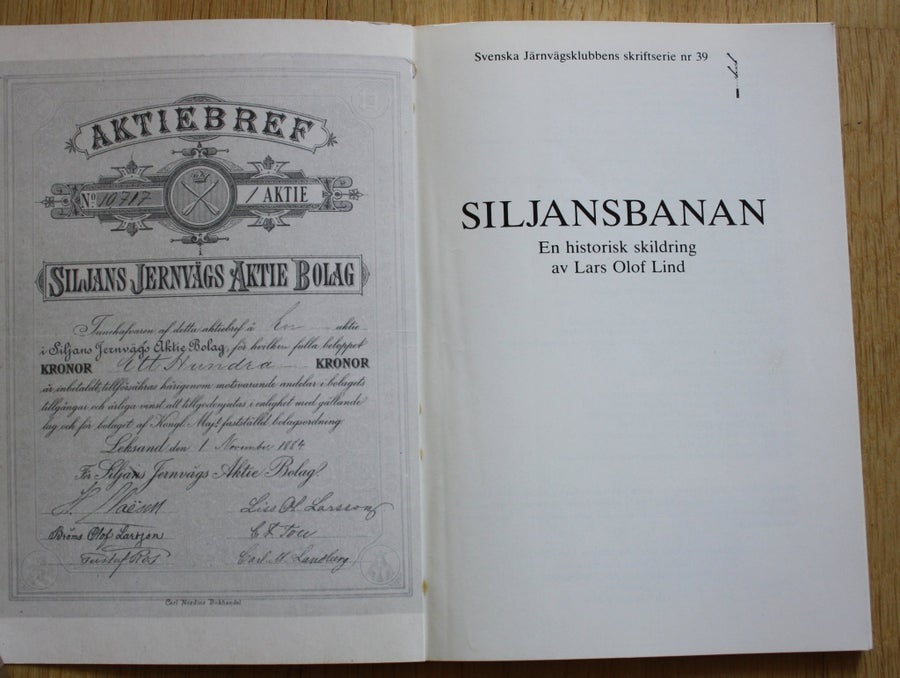 AKTIEBREF
No 10717 1 AKTIE
SILJANS JERNVÄGS AKTIE BOLAG
Innehafvaren af detta aktiebref å En aktie
i Siljans Jernvägs Aktie Bolag, för hvilken fulla beloppet
KRONOR Ett Hundra KRONOR
är inbetaldt, tillförsäkras härigenom motsvarande andelar i bolagets
tillgångar och årliga vinst, allt till godonjutas i enlighet med gällande
lag och för bolaget af Kongl. Maj:t fastställd bolagsordning
Leksand den 1 November 1884
För Siljans Jernvägs Aktie Bolag:
Liss Ol. Larsson
Bröms Olof Larsson
Gustaf Ros Carl M. Landberg.
Carl Nordins Bokhandel
Svenska Järnvägsklubbens skriftserie nr 39
SILJANSBANAN
En historisk skildring
av Lars Olof Lind